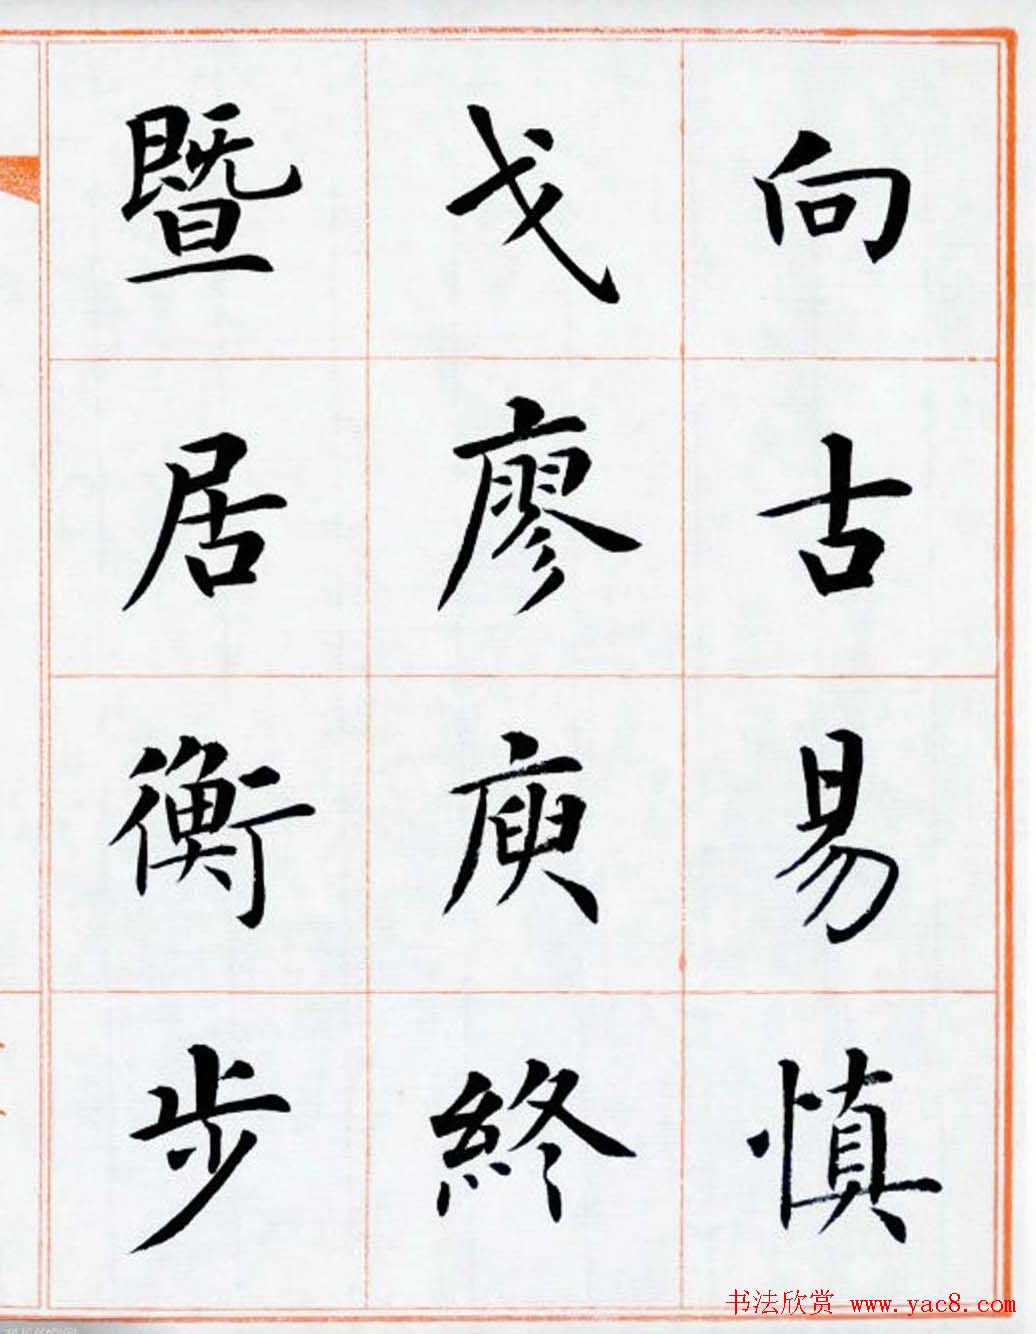 向古易慎
戈廖庾終
暨居衡步
书法欣赏 www.yac8.com